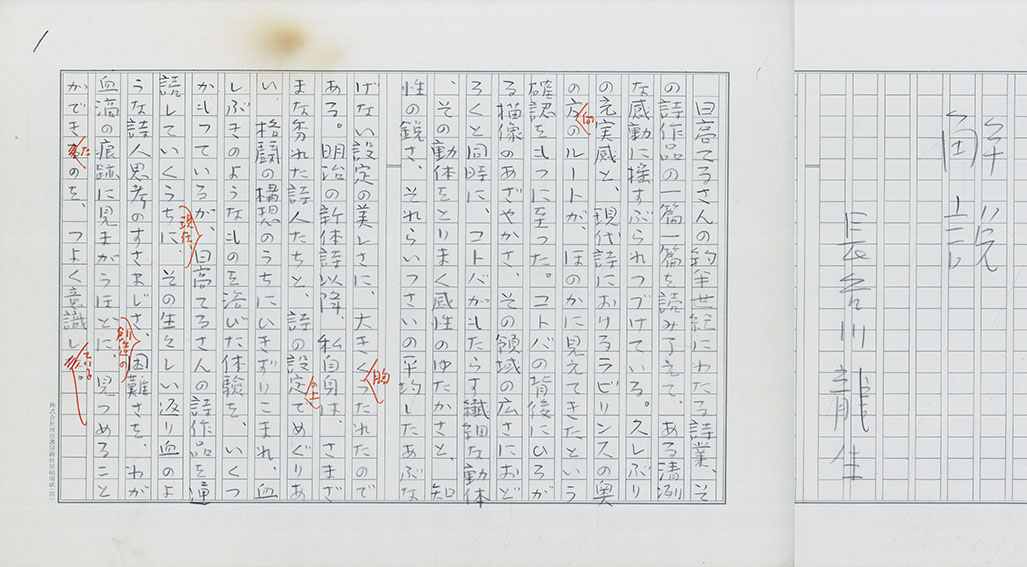 解説
長谷川龍生
1
日高てるさんの約半世紀にわたる詩業、そ
の詩作品の一篇一篇を読み了えて、ある清冽
な感動に揺すぶられつづけている。久しぶり
の充実感と、現代詩におけるラビリンスの奥
の方向のルートが、ほのかに見えてきたという
確認をもつに至った。コトバの背後にひろが
る描像のあざやかさ、その領域の広さにおど
ろくと同時に、コトバがもたらす繊細な動体
、その動体をとりまく感性のゆたかさと、知
性の鋭さ、それらいっさいの平均したあぶな
げない設定の美しさに、大きく胸うたれたので
ある。明治の新体詩以降、私自身は、さまざ
まな秀れた詩人たちと、詩の設定の上でめぐりあ
い、格闘の構想のうちにひきずりこまれ、血
しぶきのようなものを浴びた体験を、いくつ
かもっているが、現在、日高てるさんの詩作品を通
読していくうちに、その生々しい返り血のよ
うな詩人思考のすさまじさ、創造の困難さを、わが
血滴の痕跡に見まがうほどに、見つめること
ができたのを、つよく意識している。
株式会社河出書房新社原稿用紙